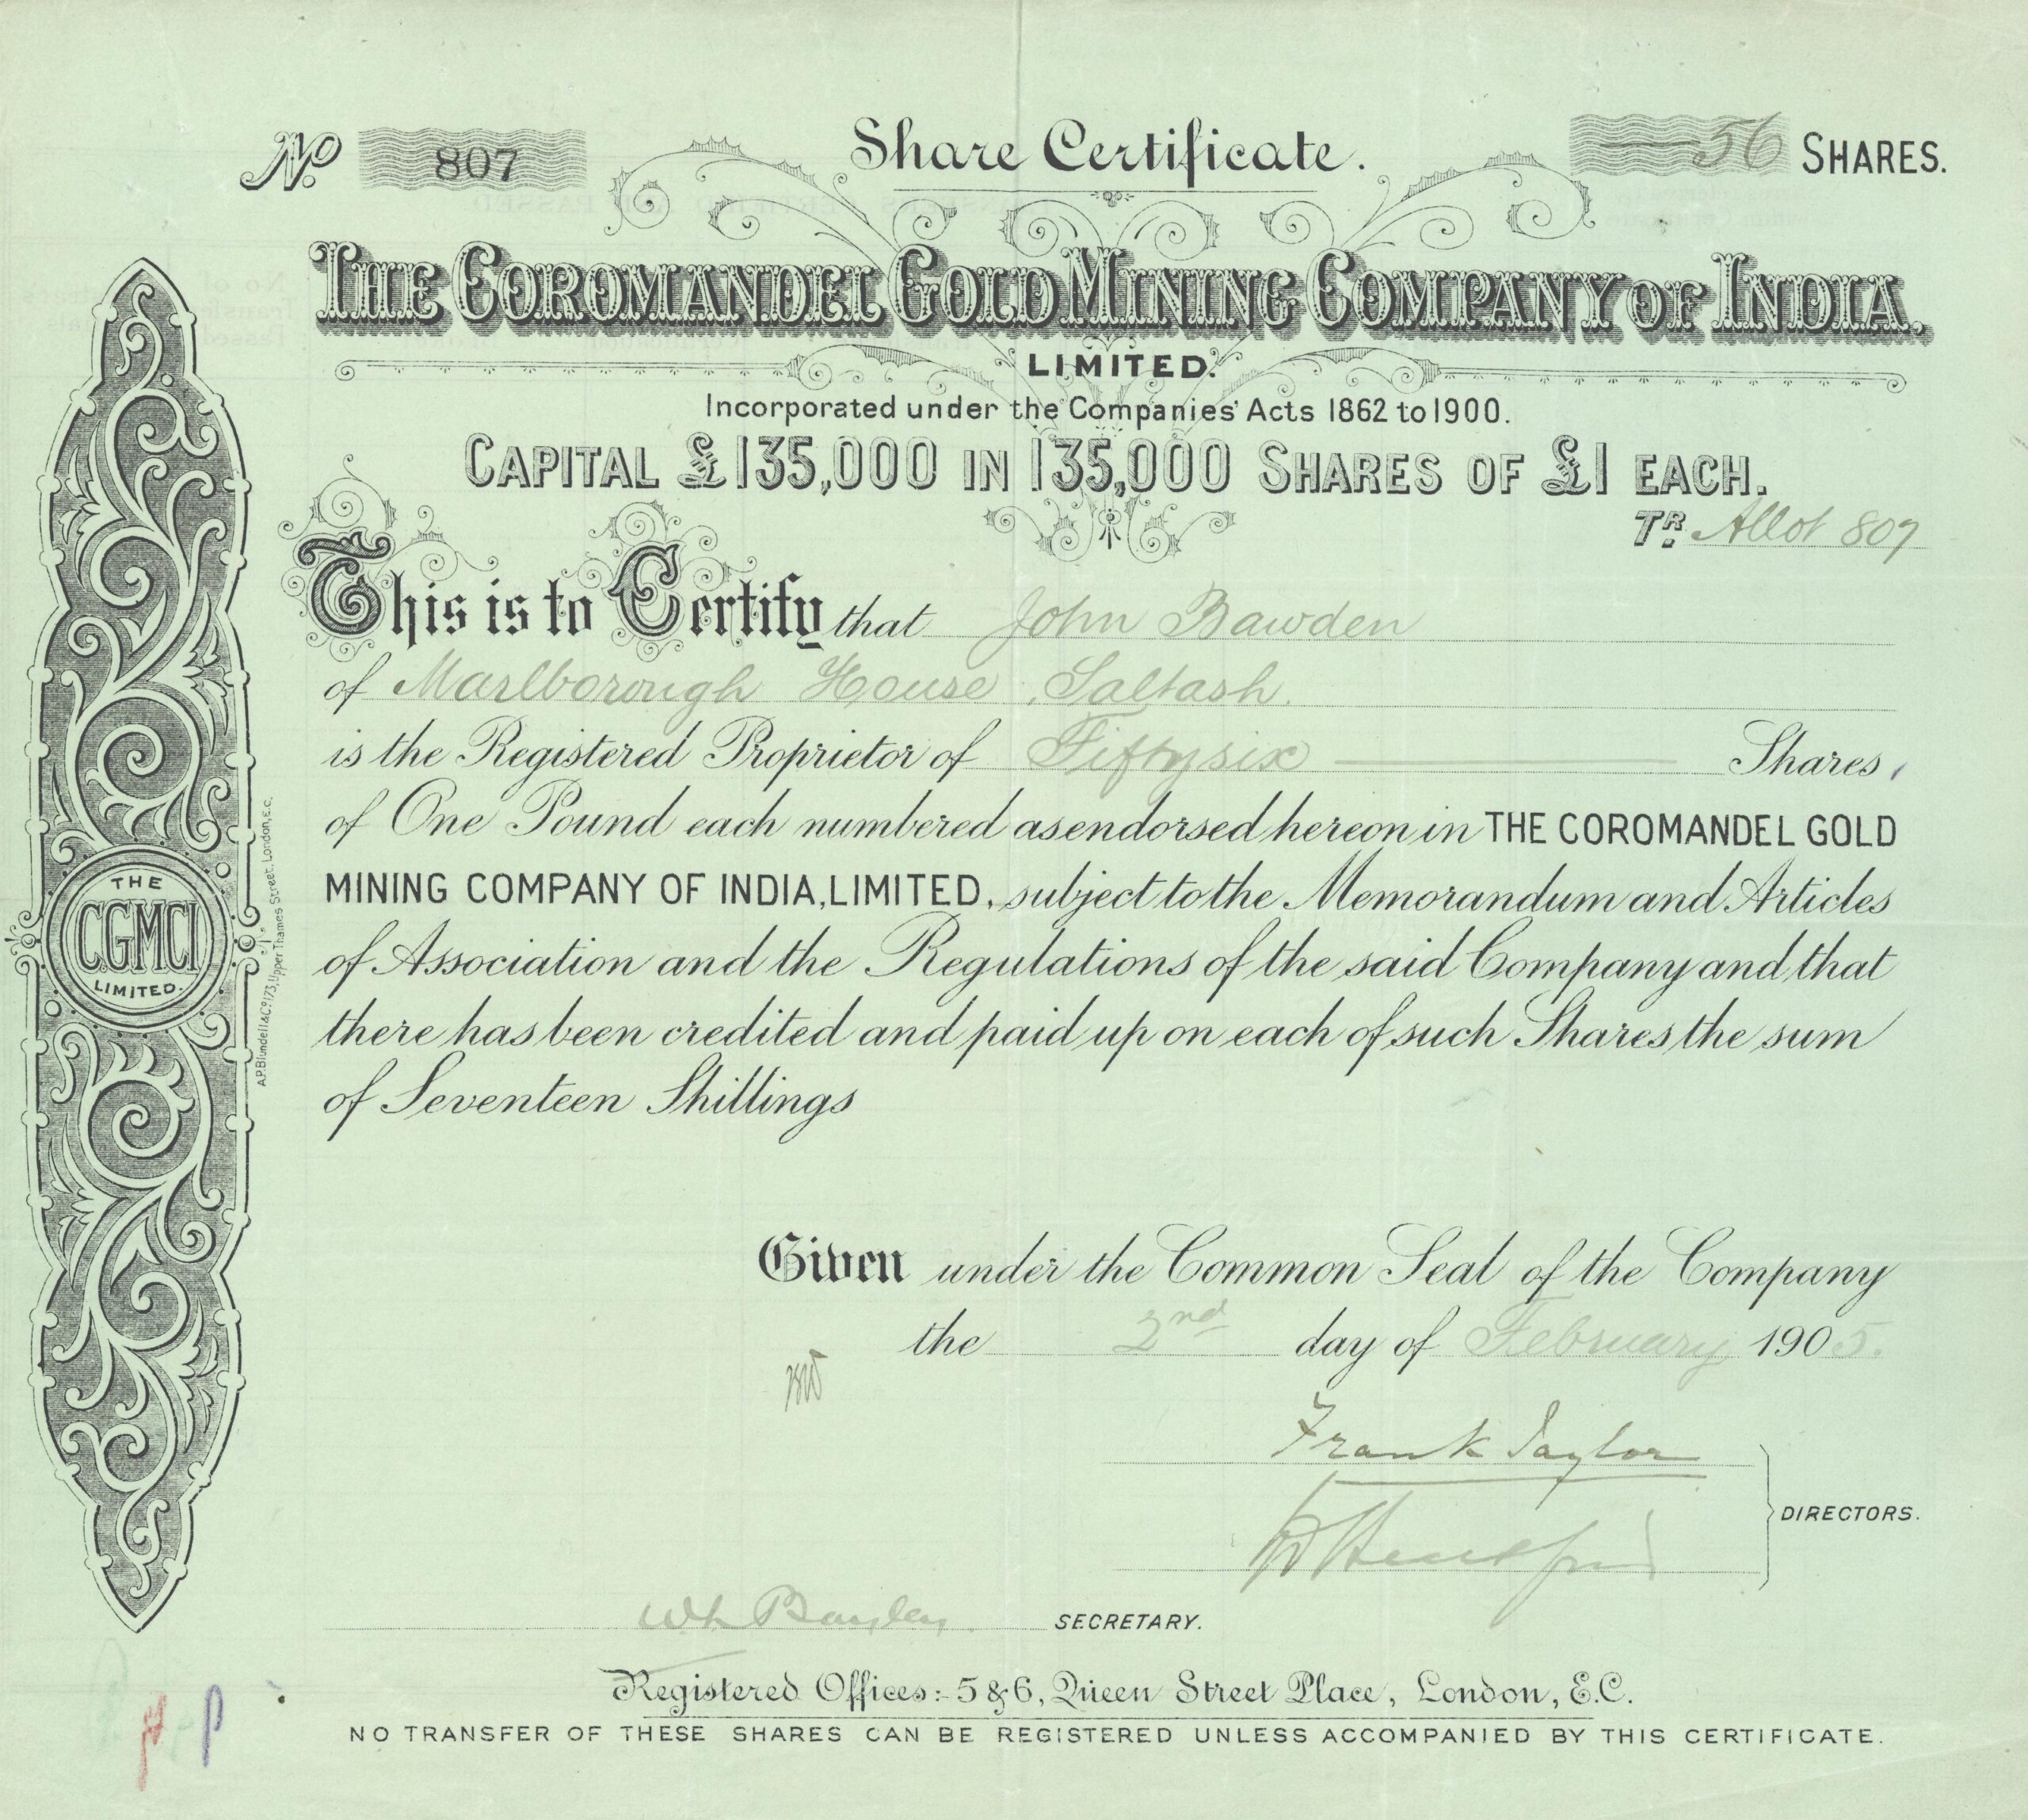 Share Certificate.
No. 807
56 SHARES.
THE COROMANDEL GOLD MINING COMPANY OF INDIA.
LIMITED.
Incorporated under the Companies' Acts 1862 to 1900.
CAPITAL £135,000 IN 135,000 SHARES OF £1 EACH.
TR. Allot 807
This is to Certify that John Bawden
of Marlborough House, Saltash.
is the Registered Proprietor of Fiftysix Shares,
of One Pound each numbered as endorsed hereon in THE COROMANDEL GOLD
MINING COMPANY OF INDIA, LIMITED, subject to the Memorandum and Articles
of Association and the Regulations of the said Company and that
there has been credited and paid up on each of such Shares the sum
of Seventeen Shillings
Given under the Common Seal of the Company
the 2nd day of February 1905.
Frank Taylor
DIRECTORS.
SECRETARY.
Registered Offices:- 5 & 6, Queen Street Place, London, E.C.
NO TRANSFER OF THESE SHARES CAN BE REGISTERED UNLESS ACCOMPANIED BY THIS CERTIFICATE.
THE
CGMCI
LIMITED.
A.P. Blundell & Co. 173, Upper Thames Street, London, E.C.